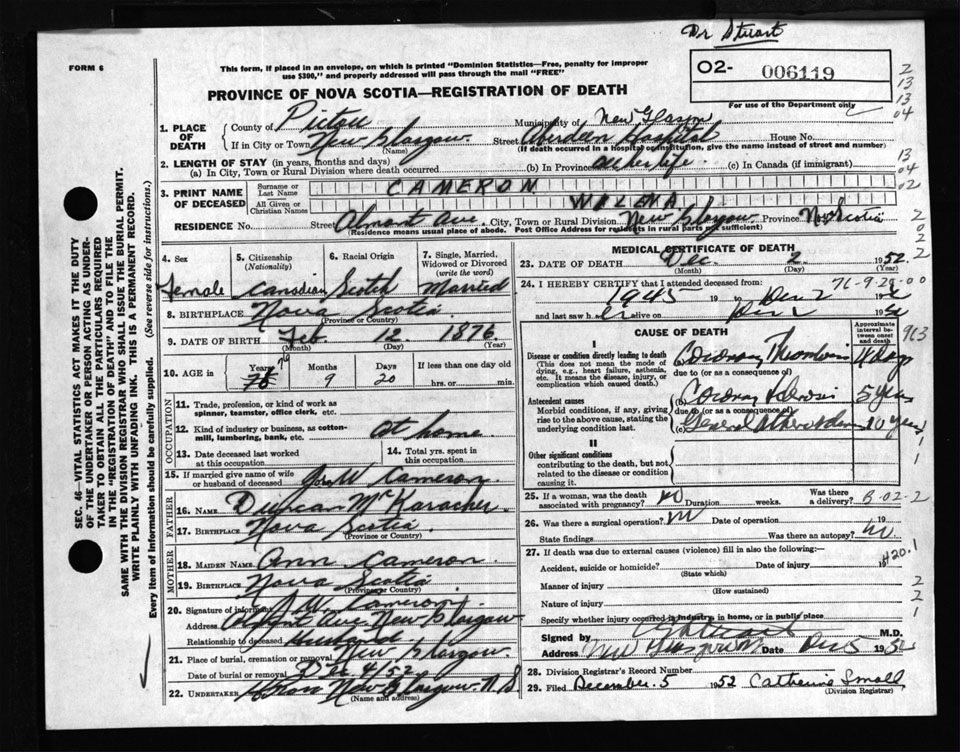 Dr Stuart
FORM 6
This form, if placed in an envelope, on which is printed "Dominion Statistics—Free, penalty for improper
use $300," and properly addressed will pass through the mail "FREE"
02- 006119
PROVINCE OF NOVA SCOTIA—REGISTRATION OF DEATH
For use of the Department only
1. PLACE OF DEATH
County of Pictou Municipality of New Glasgow
If in City or Town New Glasgow Street Aberdeen Hospital House No.
(Name) (If death occurred in a hospital or institution, give the name instead of street and number)
2. LENGTH OF STAY (in years, months and days)
(a) In City, Town or Rural Division where death occurred (b) In Province all her life (c) In Canada (if immigrant)
3. PRINT NAME OF DECEASED
Surname or Last Name CAMERON
All Given or Christian Names WILENA
RESIDENCE No. Street Almont Ave. City, Town or Rural Division New Glasgow Province N. Scotia
(Residence means usual place of abode. Post Office Address for residents in rural parts not sufficient)
4. Sex Female
5. Citizenship (Nationality) Canadian
6. Racial Origin Scotch
7. Single, Married, Widowed or Divorced (write the word) Married
8. BIRTHPLACE Nova Scotia
(Province or Country)
9. DATE OF BIRTH Feb. 12 1876
(Month) (Day) (Year)
10. AGE in Years 76 Months 9 Days 20 If less than one day old hrs. or min.
OCCUPATION
11. Trade, profession, or kind of work as spinner, teamster, office clerk, etc.
12. Kind of industry or business, as cotton-mill, lumbering, bank, etc. at home
13. Date deceased last worked at this occupation
14. Total yrs. spent in this occupation
15. If married give name of wife or husband of deceased W. Cameron
FATHER
16. NAME Duncan
17. BIRTHPLACE Nova Scotia
(Province or Country)
MOTHER
18. MAIDEN NAME Ann Cameron
19. BIRTHPLACE Nova Scotia
(Province or Country)
20. Signature of informant J. W. Cameron
Address Almont Ave. New Glasgow
Relationship to deceased husband
21. Place of burial, cremation or removal New Glasgow
Date of burial or removal Dec 4/52
22. UNDERTAKER New Glasgow N S
(Name and address)
MEDICAL CERTIFICATE OF DEATH
23. DATE OF DEATH Dec. 2 1952
(Month) (Day) (Year)
24. I HEREBY CERTIFY that I attended deceased from: 76-9-20-00
1945 19 to Dec 2 1952
and last saw her alive on Dec 19 52
CAUSE OF DEATH
Approximate interval between onset and death
I
Disease or condition directly leading to death
(This does not mean the mode of dying, e.g., heart failure, asthenia, etc. It means the disease, injury, or complication which caused death.)
(a) Coronary Thrombosis 4 days
due to (or as a consequence of)
Antecedent causes
Morbid conditions, if any, giving rise to the above cause, stating the underlying condition last.
(b) Coronary Sclerosis 5 years
due to (or as a consequence of)
(c) General 10 years
II
Other significant conditions
contributing to the death, but not related to the disease or condition causing it.
25. If a woman, was the death associated with pregnancy? no Duration weeks. Was there a delivery?
26. Was there a surgical operation? no Date of operation 19
State findings Was there an autopsy? no
27. If death was due to external causes (violence) fill in also the following:—
Accident, suicide or homicide? Date of injury 19
(State which)
Manner of injury
(How sustained)
Nature of injury
Specify whether injury occurred in industry, in home, or in public place
Signed by M.D.
Address New Glasgow Date Dec 5 1952
28. Division Registrar's Record Number
29. Filed December 5 1952 Catherine Small
(Division Registrar)
B-02-2
420.1
963
SEC. 46—VITAL STATISTICS ACT MAKES IT THE DUTY
OF THE UNDERTAKER OR PERSON ACTING AS UNDERTAKER TO OBTAIN ALL THE PARTICULARS REQUIRED
IN THE "REGISTRATION OF DEATH" AND TO FILE THE
SAME WITH THE DIVISION REGISTRAR WHO SHALL ISSUE THE BURIAL PERMIT.
WRITE PLAINLY WITH UNFADING INK. THIS IS A PERMANENT RECORD.
Every item of information should be carefully supplied. (See reverse side for instructions.)